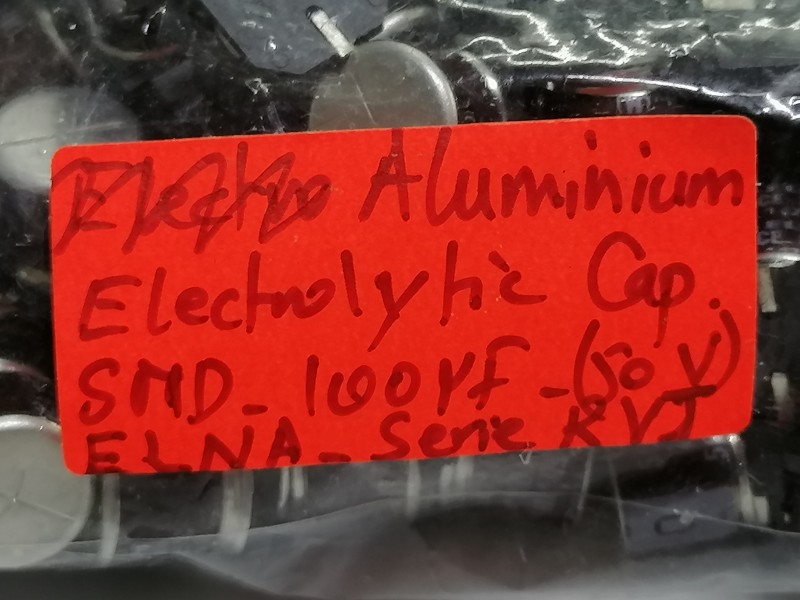 Electro Aluminium
Electrolytic Cap.
SMD_100µF_(50 V)
ELNA_Serie RVJ